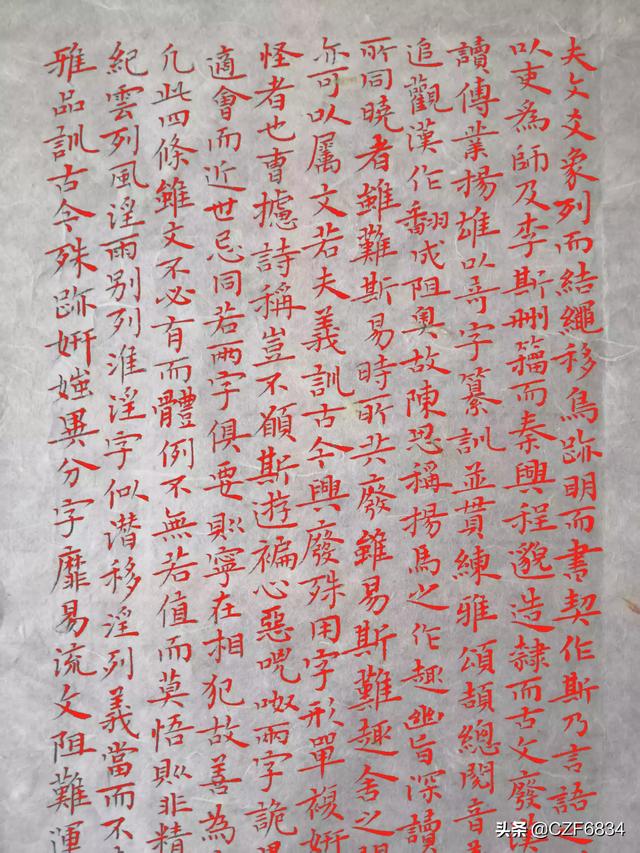 夫文爻象列而結繩移鳥跡明而書契作斯乃言語之
以吏為師及李斯刪籀而秦興程邈造隸而古文廢漢
讀傳業揚雄以奇字纂訓並貫練雅頌頡總閱音
追觀漢作翻成阻奧故陳恐稱揚馬之作趣幽旨深讀
所同曉者雖難斯易時所共廢雖易斯難趣舍之間
亦可以屬文若夫義訓古今興廢殊用字形單複妍
怪者也曹攄詩稱豈不願斯遊褊心惡呶兩字詭
適會而近世忌同若兩字俱要則寧在相犯故善為
凡此四條雖文不必有而體例不無若值而莫悟則非精
紀雲列風淫雨別列淮淫字似潛移淫列義當而不
雅品訓古今殊跡妍媸異分字靡易流文阻難運
头条 @CZF6834